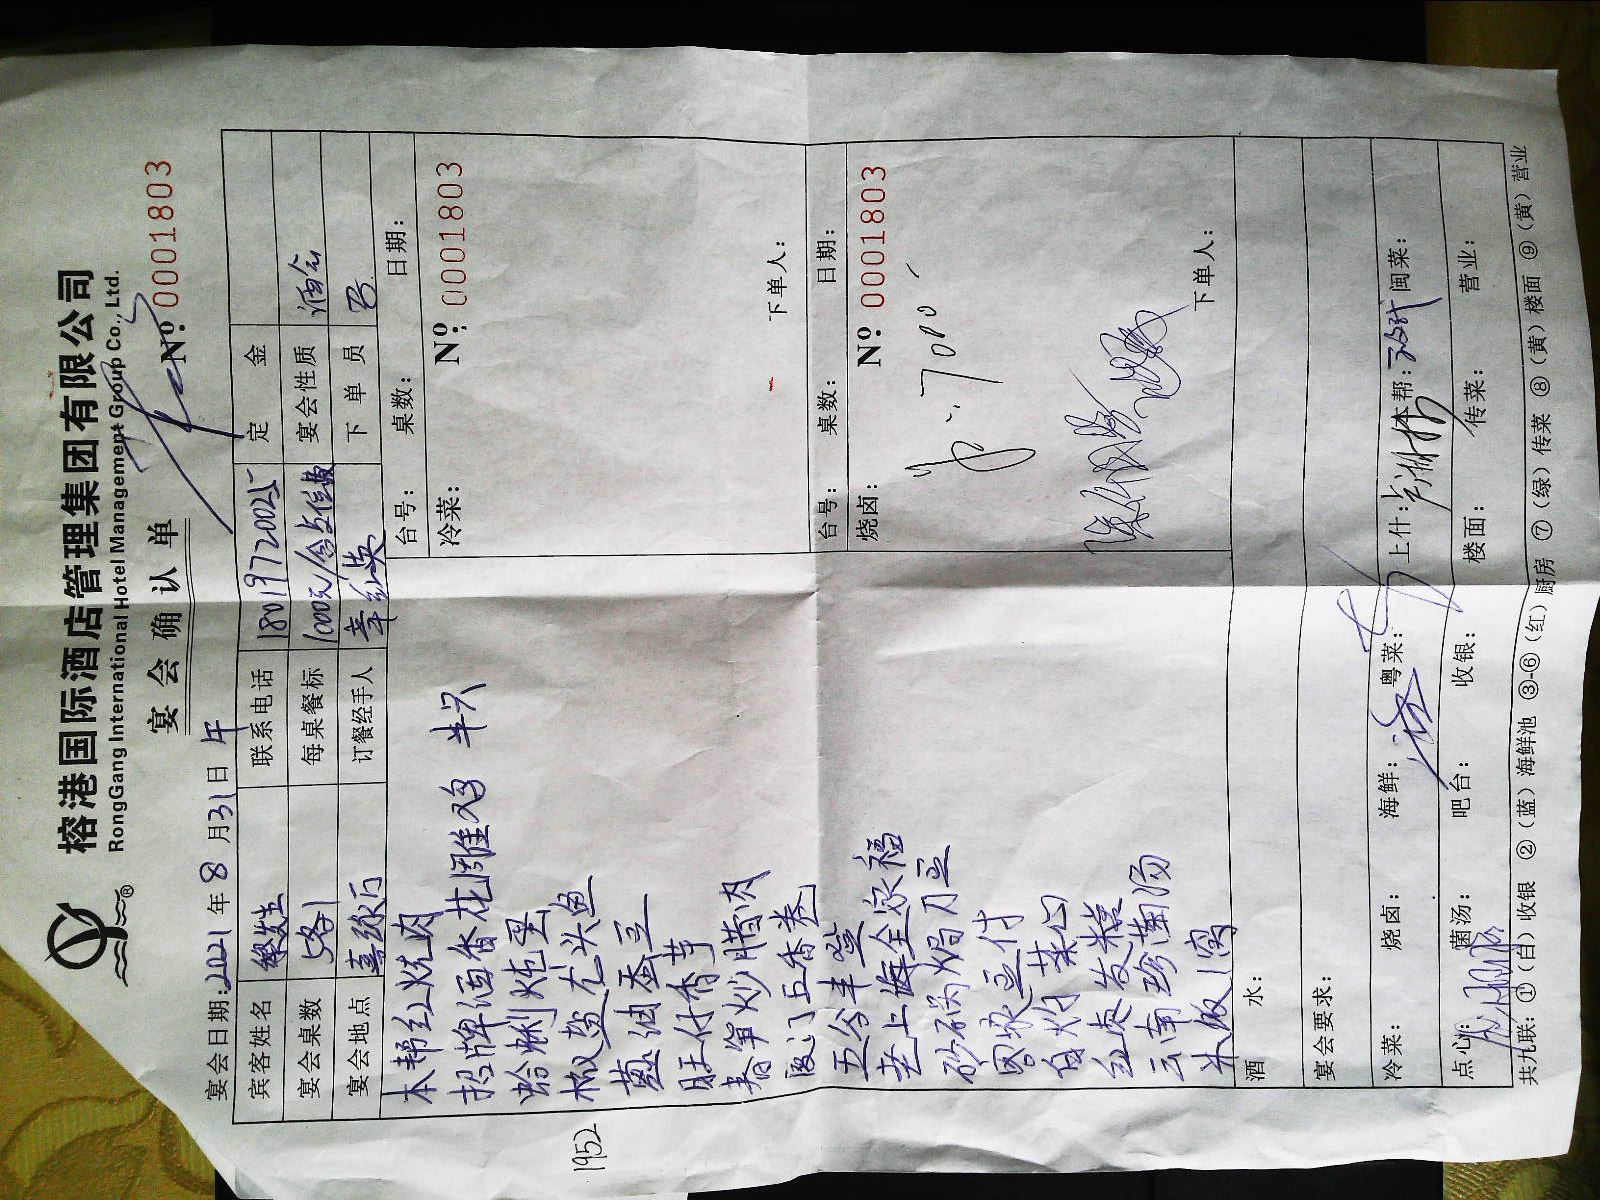 榕港国际酒店管理集团有限公司
RongGang International Hotel Management Group Co., Ltd.
宴会确认单
№: 0001803
宴会日期: 2021年8月31日 午
宾客姓名 联系电话 18019720025 定金
宴会桌数 每桌餐标 1000元/含点位费 宴会性质 酒会
宴会地点 喜欢厅 订餐经手人 章红英 下单员
本帮红烧肉
招牌酒香花雕鸡 半只
蛤蜊炖蛋
椒盐龙头鱼
葱油蚕豆
旺仔香芋
春笋炒腊肉
厦门五香卷
五谷丰登
老上海全家福
砂锅焗刀豆
国家豆付
白灼菜心
红枣发糕
云南珍菌汤
米饭1窝
1952
台号: 桌数: 日期:
冷菜: № 0001803
下单人:
台号: 桌数: 日期:
烧卤: № 0001803
7000
下单人:
酒水:
宴会要求:
冷菜: 烧卤: 海鲜: 粤菜: 上什: 本帮: 闽菜:
点心: 菌汤: 吧台: 收银: 楼面: 传菜: 营业:
共九联: ①(白)收银 ②(蓝)海鲜池 ③-⑥(红)厨房 ⑦(绿)传菜 ⑧(黄)楼面 ⑨(黄)营业